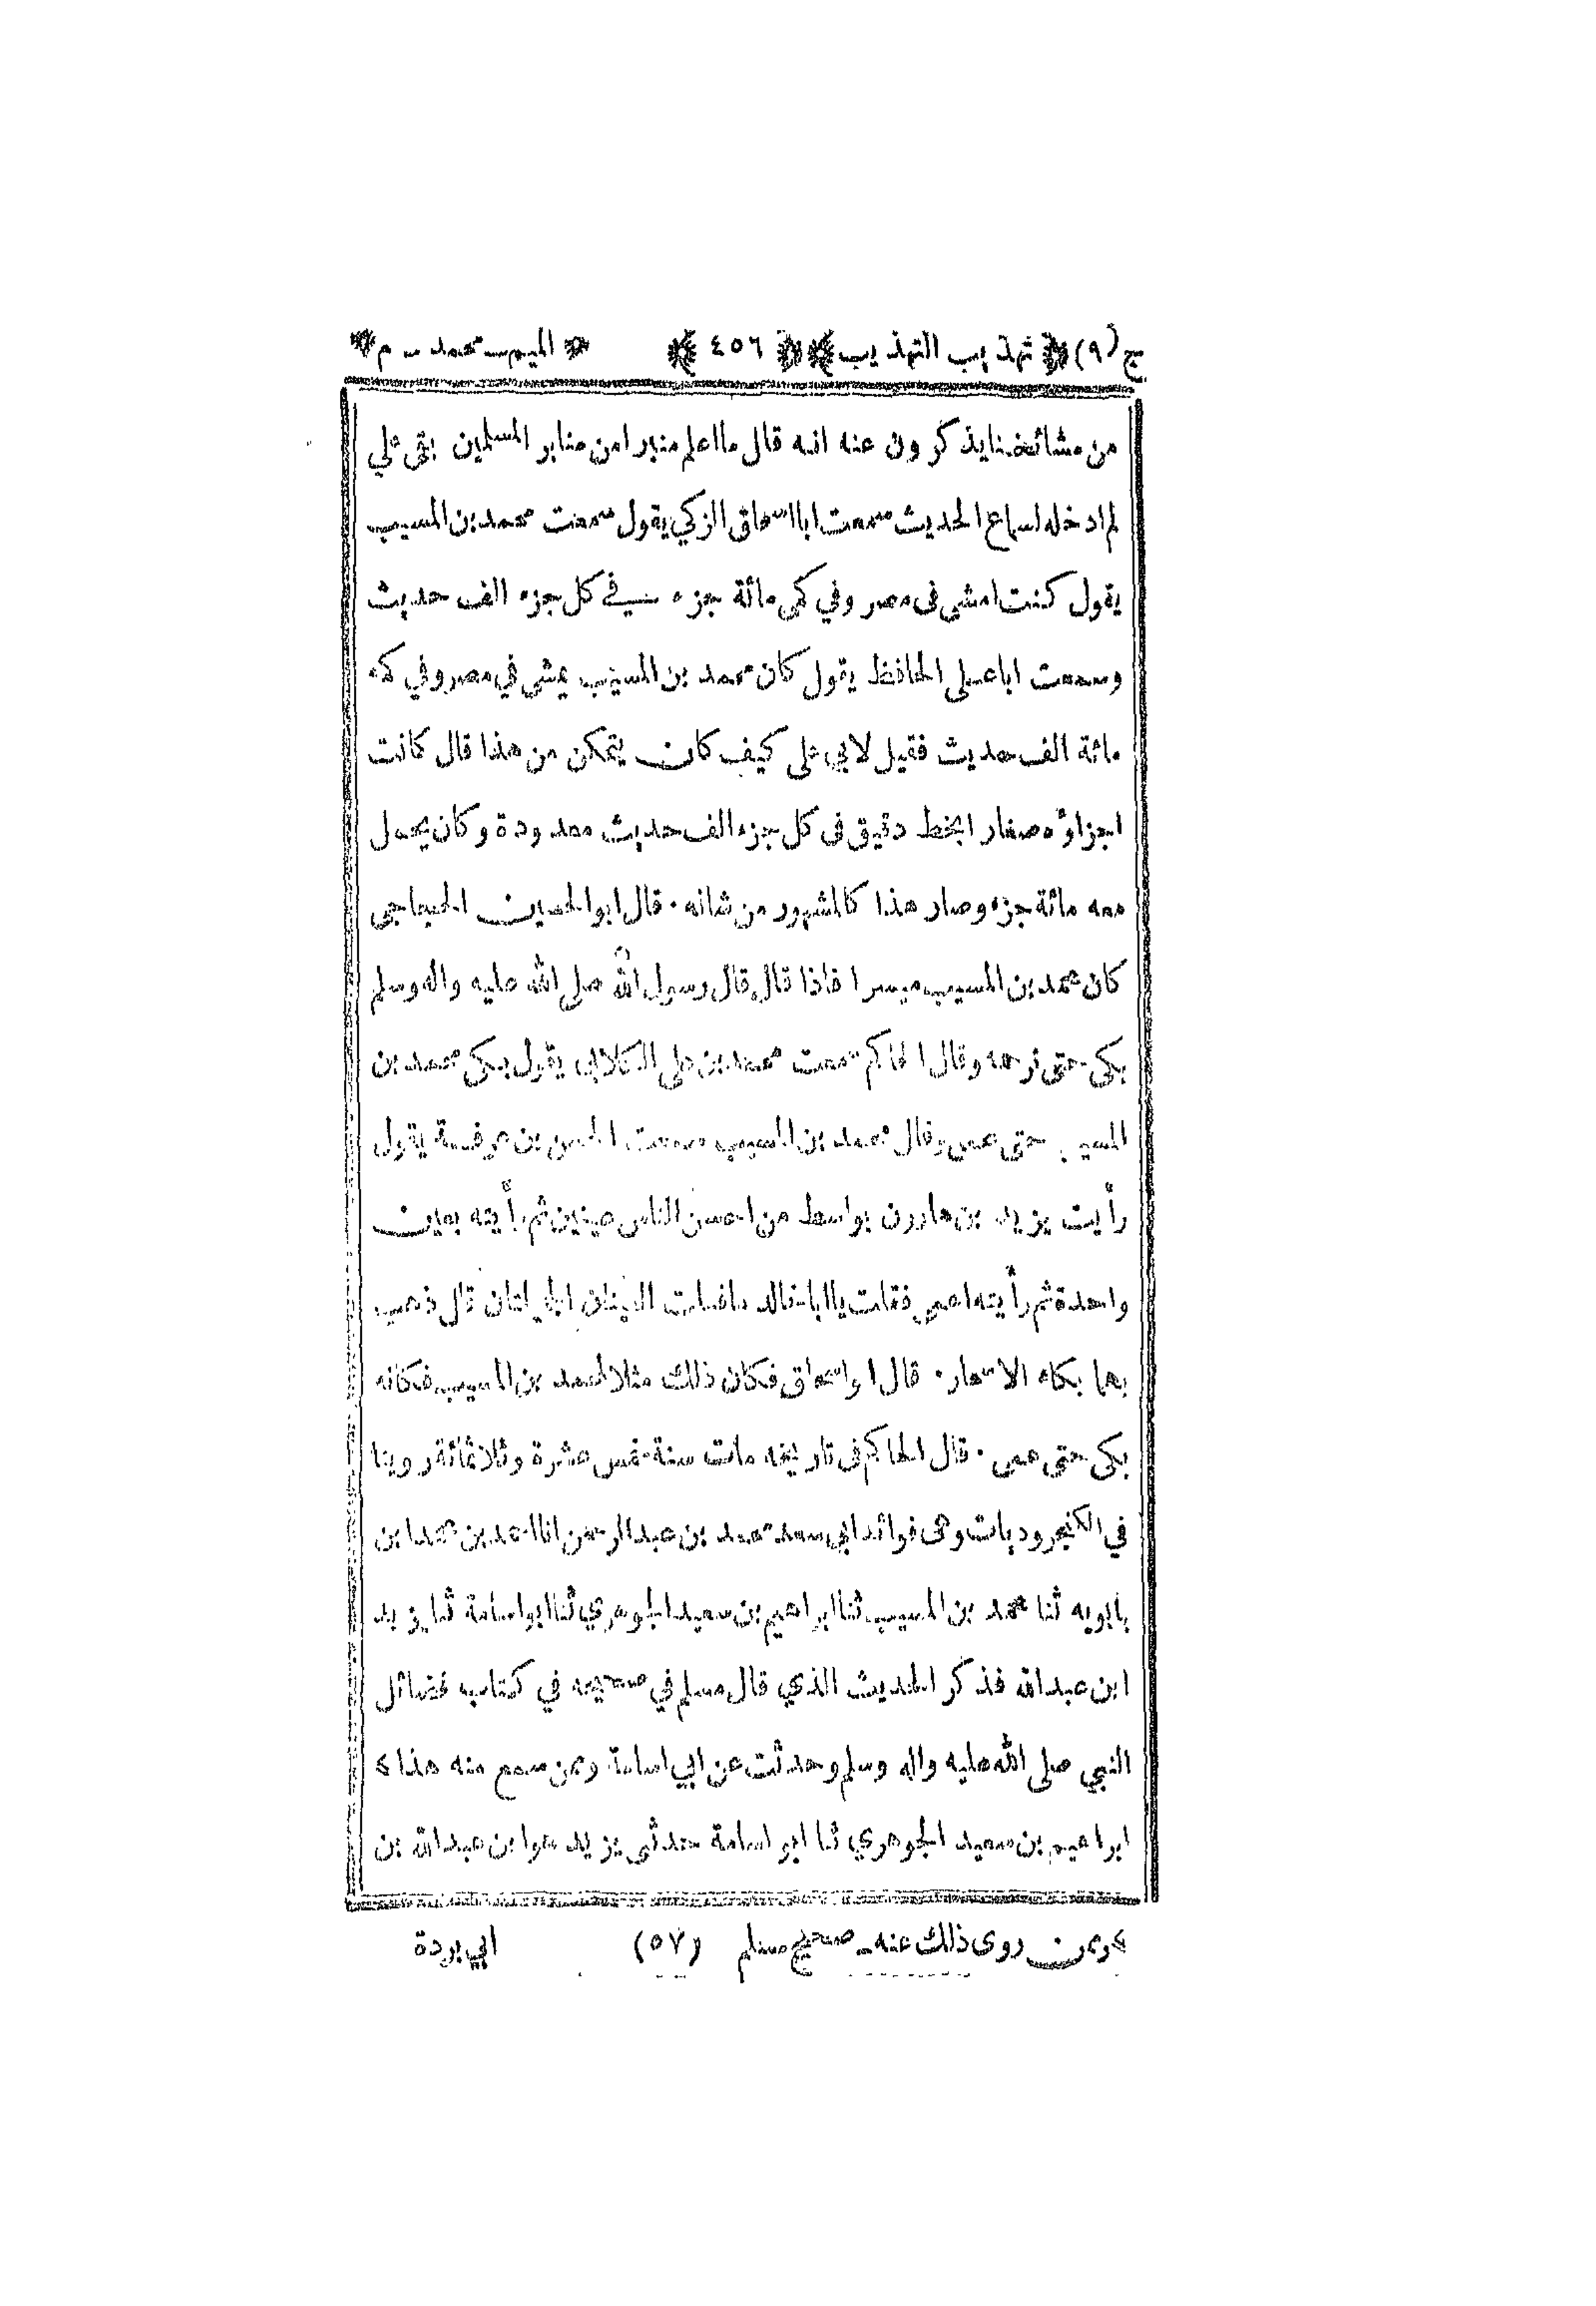 ج (٩) ﴿ تهذيب التهذيب ﴾ ﴿ ٤٥٦ ﴾ ﴿ الميم - محمد - م ﴾
من مشائخنا يذكرون عنه انه قال ما اعلم منبرا من منابر المسلمين بقي علي
لم ادخله لسماع الحديث سمعت ابا اسحاق المزكي يقول سمعت محمد بن المسيب
يقول كنت امشي في مصر وفي كمي مائة جزء في كل جزء الف حديث
وسمعت ابا علي الحافظ يقول كان محمد بن المسيب يمشي في مصر وفي كمه
مائة الف حديث فقيل لابي علي كيف كان يتمكن من هذا قال كانت
اجزاؤه صغار ا بخط دقيق في كل جزء الف حديث معدودة وكان يحمل
معه مائة جزء وصار هذا كالمشهور من شانه · قال ابو الحسين الحجاجي
كان محمد بن المسيب ميسرا فاذا قال قال رسول الله صلى الله عليه واله وسلم
بكى حتى نرحمه وقال الحاكم سمعت محمد بن علي الكلابي يقول بكى محمد بن
المسيب حتى عمي وقال محمد بن المسيب سمعت الحسن بن عرفة يقول
رأيت يزيد بن هارون بواسط من احسن الناس عينين ثم رأيته بعين
واحدة ثم رأيته اعمى فقلت يا ابا خالد ما فعلت العينان الجميلتان قال ذهب
بهما بكاء الاسحار · قال ابو اسحاق فكان ذلك مثلا لمحمد بن المسيب فكانه
بكى حتى عمي · قال الحاكم في تاريخه مات سنة خمس عشرة وثلاثمائة روينا
في الكنجروديات وهي فوائد ابي سعد محمد بن عبد الرحمن انا احمد بن محمد ابن
بابويه ثنا محمد بن المسيب ثنا ابراهيم بن سعيد الجوهري ثنا ابو اسامة ثنا يزيد
ابن عبد الله فذكر الحديث الذي قال مسلم في صحيحه في كتاب فضائل
النبي صلى الله عليه واله وسلم وحدثت عن ابي اسامة وممن سمع منه هذا ٤
ابراهيم بن سعيد الجوهري ثنا ابو اسامة حدثني يزيد هو ابن عبد الله بن
٤ وممن روى ذلك عنه - صحيح مسلم (٥٧) ابي بردة